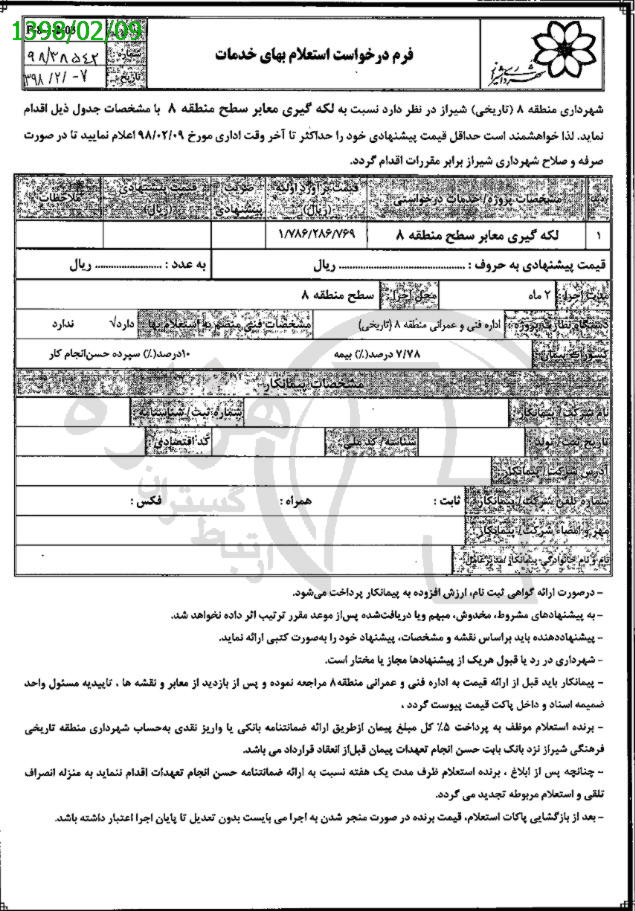 1398/02/09
فرم درخواست استعلام بهای خدمات
شماره: ۹۸/۳۸۵۴۲
تاریخ: ۱۳۹۸/۲/۰۷
شهرداری منطقه ۸ (تاریخی) شیراز در نظر دارد نسبت به لکه گیری معابر سطح منطقه ۸ با مشخصات جدول ذیل اقدام
نماید. لذا خواهشمند است حداقل قیمت پیشنهادی خود را حداکثر تا آخر وقت اداری مورخ ۹۸/۰۲/۰۹ اعلام نمایید تا در صورت
صرفه و صلاح شهرداری شیراز برابر مقررات اقدام گردد.
مشخصات پروژه/ خدمات درخواستی قیمت برآورد اولیه (ریال) ضریب پیشنهادی قیمت پیشنهادی (ریال) ملاحظات
۱ لکه گیری معابر سطح منطقه ۸ ۱/۷۸۶/۲۸۶/۷۶۹
قیمت پیشنهادی به حروف : ............ ریال به عدد : ............ ریال
مدت اجرا: ۲ ماه محل اجرا: سطح منطقه ۸
دستگاه نظارت پروژه: اداره فنی و عمرانی منطقه ۸ (تاریخی) مشخصات فنی منضم به استعلام بها: دارد√ ندارد
کسورات پیمان: ۷/۷۸ درصد(٪) بیمه ۱۰درصد(٪) سپرده حسن‌انجام کار
مشخصات پیمانکار
نام شرکت/ پیمانکار: شماره ثبت/ شناسنامه:
تاریخ ثبت/ تولد: شناسه/ کد ملی: کد اقتصادی:
آدرس شرکت/ پیمانکار:
شماره تلفن شرکت/ پیمانکار: ثابت : همراه : فکس :
مهر و امضاء شرکت/ پیمانکار:
نام و نام خانوادگی پیمانکار/ مدیرعامل:
هزاره
گستران
ارتباط
– درصورت ارائه گواهی ثبت نام، ارزش افزوده به پیمانکار پرداخت می‌شود.
– به پیشنهادهای مشروط، مخدوش، مبهم ویا دریافت‌شده پس‌از موعد مقرر ترتیب اثر داده نخواهد شد.
– پیشنهاددهنده باید براساس نقشه و مشخصات، پیشنهاد خود را به‌صورت کتبی ارائه نماید.
– شهرداری در رد یا قبول هریک از پیشنهادها مجاز یا مختار است.
– پیمانکار باید قبل از ارائه قیمت به اداره فنی و عمرانی منطقه۸ مراجعه نموده و پس از بازدید از معابر و نقشه ها ، تاییدیه مسئول واحد
ضمیمه اسناد و داخل پاکت قیمت پیوست گردد ،
– برنده استعلام موظف به پرداخت ۵٪ کل مبلغ پیمان ازطریق ارائه ضمانتنامه بانکی یا واریز نقدی به‌حساب شهرداری منطقه تاریخی
فرهنگی شیراز نزد بانک بابت حسن انجام تعهدات پیمان قبل‌از انعقاد قرارداد می باشد.
– چنانچه پس از ابلاغ ، برنده استعلام ظرف مدت یک هفته نسبت به ارائه ضمانتنامه حسن انجام تعهدات اقدام ننماید به منزله انصراف
تلقی و استعلام مربوطه تجدید می گردد.
– بعد از بازگشایی پاکات استعلام، قیمت برنده در صورت منجر شدن به اجرا می بایست بدون تعدیل تا پایان اجرا اعتبار داشته باشد.